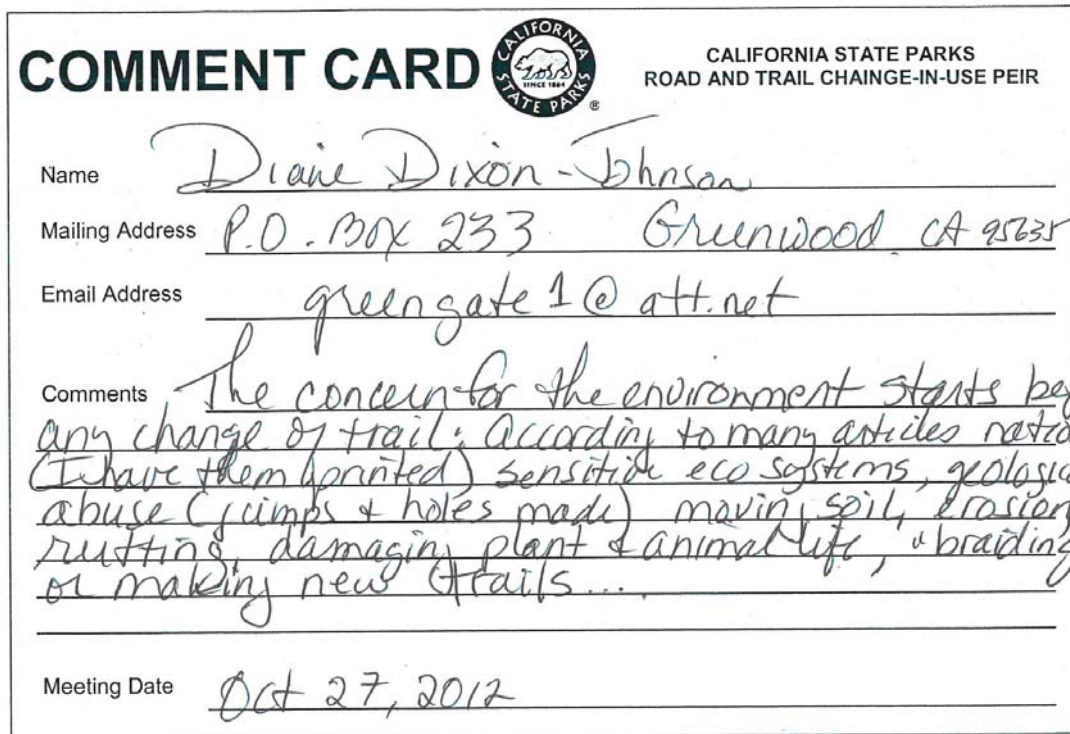 COMMENT CARD
CALIFORNIA STATE PARKS
SINCE 1864
®
CALIFORNIA STATE PARKS
ROAD AND TRAIL CHAINGE-IN-USE PEIR
Name Diane Dixon-Johnson
Mailing Address P.O. Box 233 Greenwood CA 95635
Email Address greengate1@att.net
Comments The concern for the environment starts be
any change of trail. According to many articles natio
(I have them printed) sensitive eco systems, geologic
abuse (jumps & holes made) moving soil, erosion,
rutting, damaging plant & animal life, "braiding
or making new trails....
Meeting Date Oct 27, 2012